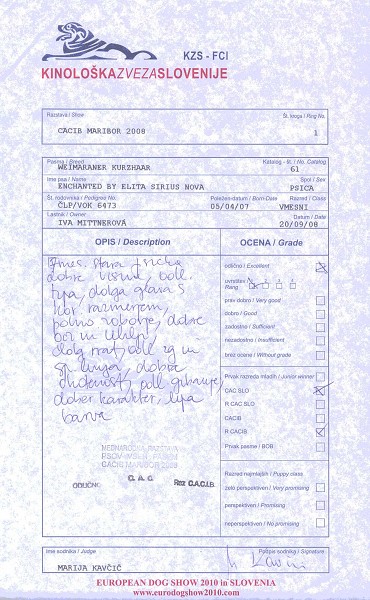 KZS - FCI
KINOLOŠKAZVEZASLOVENIJE
Razstava / Show
Št. kroga / Ring No.
CACIB MARIBOR 2008
1
Pasma / Breed
Katalog - št. / No. Catalog
WEIMARANER KURZHAAR
61
Ime psa / Name
Spol / Sex
ENCHANTED BY ELITA SIRIUS NOVA
PSICA
Št. rodovnika / Pedigree No.
Poležen-datum / Born-Date
Razred / Class
ČLP/VOK 6473
05/04/07
VMESNI
Lastnik / Owner
Datum / Date
IVA MITTNEROVÁ
20/09/08
OPIS / Description
OCENA / Grade
stara
dobre višine, odl.
tipa, dolga glava s
kor. razmerjem,
polno zobovje, dobre
dolg vrat, odl. zg in
sp. linija, dobra
odl. gibanje,
dober karakter, lepa
barva
odlično / Excellent
uvrstitev /
Rang
prav dobro / Very good
dobro / Good
zadostno / Sufficient
nezadostno / Insufficient
brez ocene / Without grade
Prvak razreda mladih / Junior winner
CAC SLO
R CAC SLO
CACIB
R CACIB
Prvak pasme / BOB
Razred najmlajših / Puppy class
zelo perspektiven / Very promising
perspektiven / Promising
neperspektiven / No promising
MEDNARODNA RAZSTAVA
PSOV VSEH PASEM
CACIB MARIBOR 2008
ODLIČNO
C.A.C.
Rez C.A.C.I.B.
Ime sodnika / Judge
Podpis sodnika / Signature
MARIJA KAVČIČ
EUROPEAN DOG SHOW 2010 in SLOVENIA
www.eurodogshow2010.com